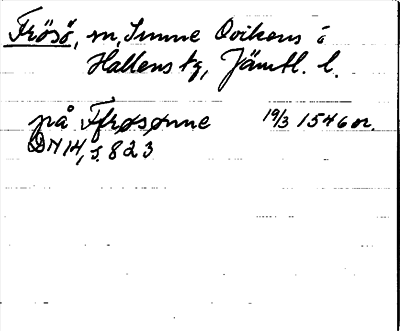 Frösö, m, Sunne Ovikens o
Hallens tg, Jämtl. l.
på Ffrøsønne 19/3 1546 or.
DN 14, s. 823